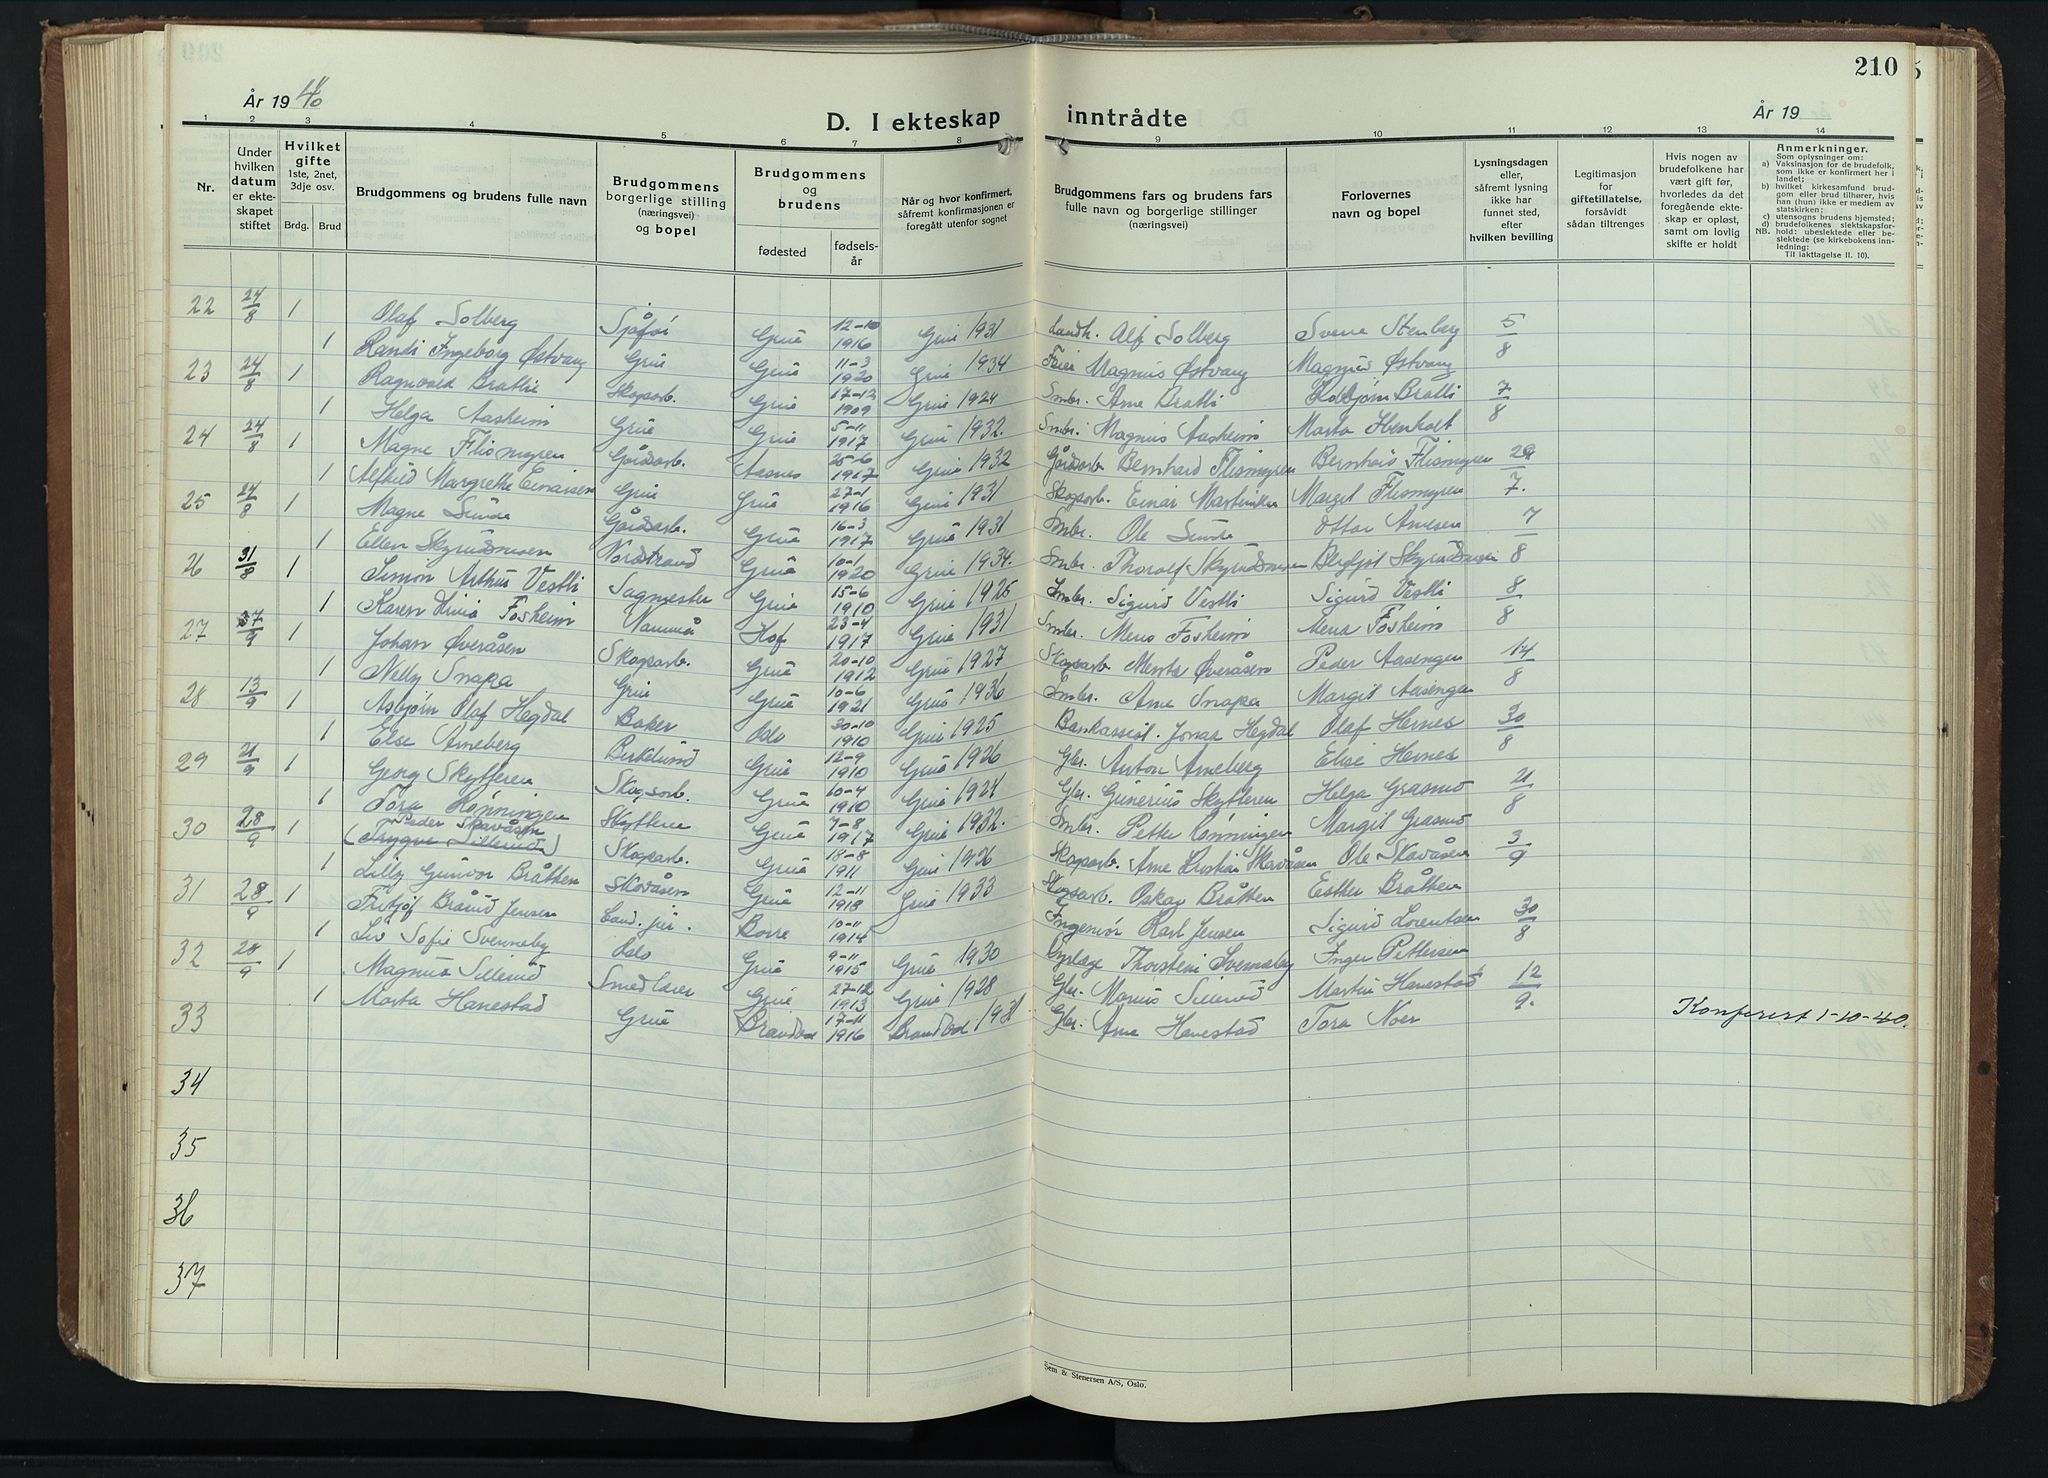 210
År 1940
D. I ekteskap inntrådte
År 19
1 2 3 4 5 6 7 8 9 10 11 12 13 14
Nr.
Under hvilken datum er ekteskapet stiftet
Hvilket gifte 1ste, 2net, 3dje osv.
Brdg. Brud
Brudgommens og brudens fulle navn
Brudgommens borgerlige stilling (næringsvei) og bopel
Brudgommens og brudens
fødested
fødselsår
Når og hvor konfirmert, såfremt konfirmasjonen er foregått utenfor sognet
Brudgommens fars og brudens fars fulle navn og borgerlige stillinger (næringsvei)
Forlovernes navn og bopel
Lysningsdagen eller, såfremt lysning ikke har funnet sted, efter hvilken bevilling
Legitimasjon for giftetillatelse, forsåvidt sådan tiltrenges
Hvis nogen av brudefolkene har vært gift før, hvorledes da det foregående ekteskap er opløst, samt om lovlig skifte er holdt
Anmerkninger.
Som oplysninger om:
a) Vaksinasjon for de brudefolk, som ikke er konfirmert her i landet;
b) hvilket kirkesamfund brudgom eller brud tilhører, hvis han (hun) ikke er medlem av statskirken;
c) utensogns brudens hjemsted;
d) brudefolkenes slektskapsforhold: ubeslektede eller beslektede (se kirkebokens innledning:
NB.
Til iakttagelse II. 10).
22 24/8 1 Olaf Solberg Sjåfør Grue 12-10 1916 Grue 1931 Landh. Alf Solberg Sverre Stenberg 5/8
1 Randi Ingeborg Østvang Grue Grue 11-3 1920 Grue 1934 Feier Magnus Østvang Magnus Østvang
23 24/8 1 Ragnvald Bratli Skogsarb. Grue 17-12 1909 Grue 1924 Smbr. Arne Bratli Kolbjørn Bratli 7/8
1 Helga Aasheim Grue Grue 5-11 1917 Grue 1932. Smbr. Magnus Aasheim Marta
24 24/8 1 Magne Flismyren Gårdsarb. Aasnes 25-6 1917 Grue 1932 Gårdsarb. Bernhard Flismyren Bernhard Flismyren 29/7.
1 Alfhild Margrethe Einarsen Grue Grue 27-1 1916 Grue 1931 Skogsarb. Einar Martinsen Margit Flismyren
25 24/8 1 Magne Sunde Gårdsarb. Grue 16-3 1917 Grue 1931 Smbr. Ole Sunde Ottar Arnesen 7/8
1 Ellen Skyrudsmoen Nordstrand Grue 10-1 1920 Grue 1934. Smbr. Thoralf Skyrudsmoen Bergljot Skyrudsmoen
26 31/8 1 Simon Arthur Vestli Sagmester Grue 15-6 1910 Grue 1925 Smbr. Sigurd Vestli Sigurd Vestli 8/8
1 Karen Livia Fosheim Namnå Hof 23-4 1917 Grue 1931 Smbr. Mens Fosheim Mena Fosheim
27 7/9 1 Johan Øveråsen Skogsarb. Grue 20-10 1912 Grue 1927 Skogsarb. Mentz Øveråsen Peder Aasengen 14/8
1 Nelly Snapa Grue Grue 10-6 1921 Grue 1936 Smbr. Arne Snapa Margit Aasengen
28 13/9 1 Asbjørn Olaf Hegdal Baker Oslo 20-10 1910 Grue 1925 Bankassist. Jonas Hegdal Olaf Hernes 30/8
1 Else Arneberg Birkelund Grue 12-9 1910 Grue 1926 Gbr. Anton Arneberg Elise Hernes
29 21/9 1 Georg Skytteren Skogsarb. Grue 10-4 1910 Grue 1924 Gbr. Gunerius Skytteren Helga Grasmo 21/8
1 Tora Rønningen Skyttern Grue 7-8 1917 Grue 1932. Smbr. Petter Rønningen Margit Grasmo
30 28/9 1 Peder Skavåsen (Trygve Sillerud) Skogsarb. Grue 18-8 1911 Grue 1926 Skogsarb. Arne Kristian Skavåsen Ole Skavåsen 3/9
1 Lilly Gunvor Bråthen Skavåsen Grue 12-11 1918 Grue 1933 Skogsarb. Oskar Bråthen Esther Bråthen
31 28/9 1 Fritjof Brånd Jensen Cand. jur. Borre 10-11 1914 Ingeniør Karl Jensen Sigurd Lorentsen 30/8
1 Liv Sofie Svenneby Oslo Grue 9-11 1915 Grue 1930 Thorstein Svenneby Inger Pettersen
32 28/9 1 Magnus Sillerud Smedlærer Grue 27-12 1913 Grue 1928 Gbr. Marius Sillerud Martin Hanestad 12/9.
1 Marta Hanestad Grue Brandval 17-11 1916 Brandval 1931 Gbr. Arne Hanestad Tora Noer
33 Konferert 1-10-40.
34
35
36
37
Sem & Stenersen A/S, Oslo.